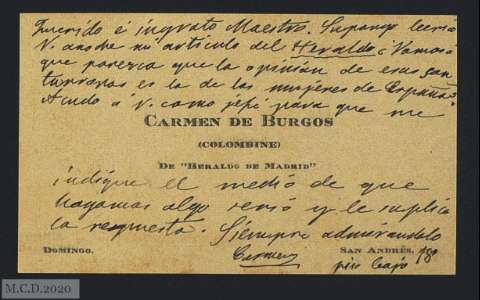 Querido é ingrato Maestro. Supongo leería
V. anoche mi artículo del Heraldo ¿Vamos á
que parezca que la opinión de esas san
turronas es la de las mujeres de España?
Acudo á V. como jefe para que me
CARMEN DE BURGOS
(COLOMBINE)
DE "HERALDO DE MADRID"
indique el medio de que
hagamos algo serio y le suplico
la respuesta. Siempre admirándolo
Carmen
DOMINGO.
SAN ANDRÉS, 18
piso bajo
M.C.D.2020